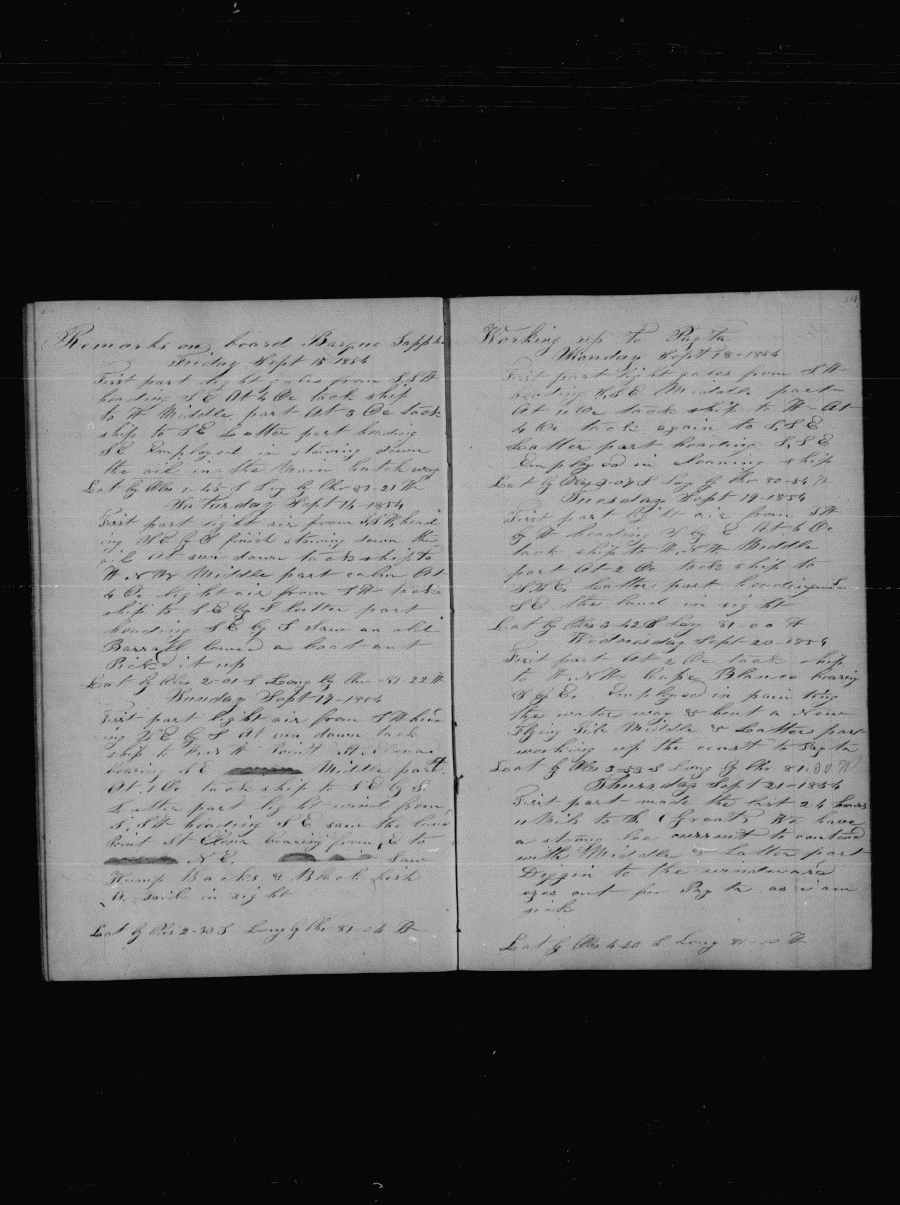 Remarks on board Barque Sapph
Friday Sept 15 1854
First part light gales from S.S.W
heading S E At 4 Oc tack ship
to W Middle part At 3 Oc tack
ship to S E Latter part heading
S E Employed in stowing down
the oil in the Main hatch way
Lat by Obs 1-45-S Long by Chr 81-21 W
Saturday Sept 16-1854
First part light air from S W head
ing S E by S finish stowing down the
oil At sun down tack ship to
W N W Middle part calm At
4 Oc light air from S W tack
ship to S E by S Latter part
heading S E by S Saw an old
Barrall lowerd a boat and
Picked it up
Lat by Obs 2-01 S Long by Chr 81-22 W
Sunday Sept 17-1854
First part light air from S W head
ing S E by S At sun down tack
ship to W N W Point St
bearing S E Middle part
At 1 Oc tack ship to S E by S
Latter part light wind from
S S W heading S E saw the land
Point St Elena bearing from E to
N E. Saw
Hump Backs & Black fish
A sail in sight
Lat by Obs 2-30 S Long by Chr 81-04 W
Working up to Payta
Monday Sept 18-1854
First part light gales from S W
heading S S E Middle part
At 11 Oc tack ship to W At
4 Oc tack again to S, S E
Latter part heading S, S E
Employed in cleaning ship
Lat by Obs 3-07 S Long by Chr 80-54 W
Tuesday Sept 19-1854
First part light air from S W
by W heading S by E At 4 Oc
tack ship to W N W Middle
part At 2 Oc tack ship to
S S E Latter part heading S
S E the land in sight
Lat by Obs 3-42 S Long 81-00 W
Wednesday Sept 20-1854
First part At 2 Oc tack ship
to W N W Cape Blanco bearing
S by E. Employed in painting
the water way & bent a New
Flying Jib Middle & Latter part
working up the coast to Payta
Lat by Obs 3-53 S Long by Chr 81.30 W
Thursday Sept 21-1854
First part made the last 24 hours
We have
a strong lee current to contend
with Middle & Latter part
Diggin to the windward
eyes out for Payta as i am
sick
Lat by Obs 4-20 S Long 81-10 W